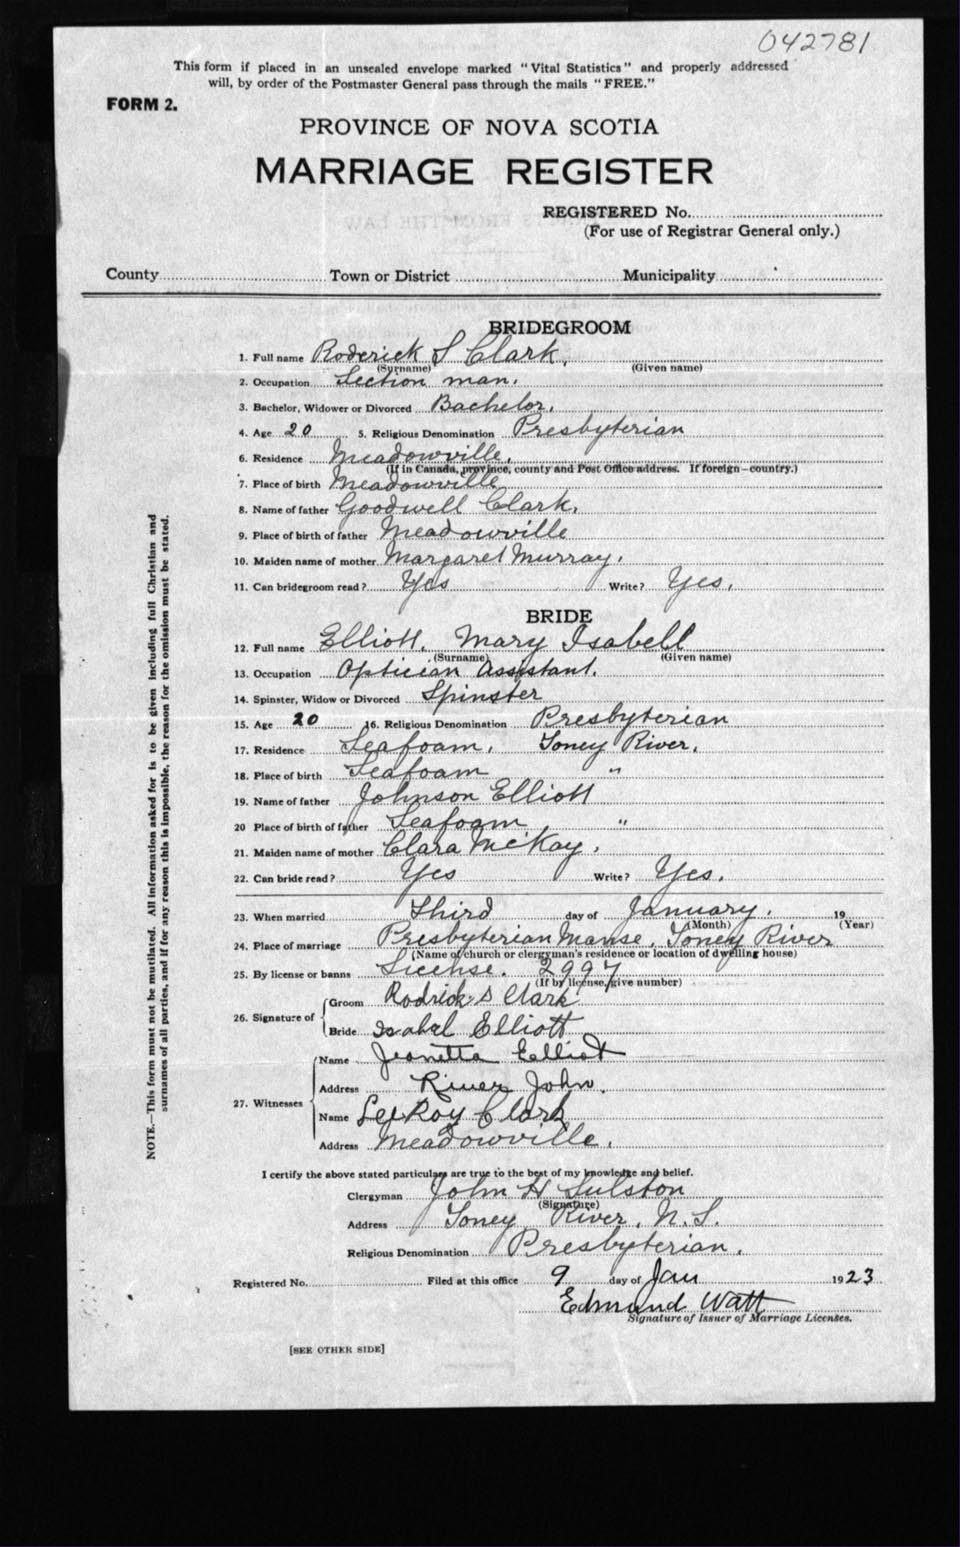 042781
This form if placed in an unsealed envelope marked "Vital Statistics" and properly addressed
will, by order of the Postmaster General pass through the mails "FREE."
FORM 2.
PROVINCE OF NOVA SCOTIA
MARRIAGE REGISTER
REGISTERED No.
(For use of Registrar General only.)
County Town or District Municipality
BRIDEGROOM
1. Full name Roderick S Clark.
(Surname) (Given name)
2. Occupation Section man.
3. Bachelor, Widower or Divorced Bachelor.
4. Age 20 5. Religious Denomination Presbyterian
6. Residence Meadowville.
(If in Canada, province, county and Post Office address. If foreign—country.)
7. Place of birth Meadowville
8. Name of father Goodwell Clark.
9. Place of birth of father Meadowville
10. Maiden name of mother Margaret Murray.
11. Can bridegroom read? Yes Write? Yes.
BRIDE
12. Full name Elliott. Mary Isabell
(Surname) (Given name)
13. Occupation Optician Assistant.
14. Spinster, Widow or Divorced Spinster
15. Age 20 16. Religious Denomination Presbyterian
17. Residence Seafoam, Toney River.
18. Place of birth Seafoam "
19. Name of father Johnson Elliott
20 Place of birth of father Seafoam "
21. Maiden name of mother Clara McKay.
22. Can bride read? Yes Write? Yes.
23. When married Third day of January. 19
(Month) (Year)
24. Place of marriage Presbyterian Manse, Toney River
(Name of church or clergyman's residence or location of dwelling house)
25. By license or banns License. 2997
(If by license, give number)
26. Signature of
Groom Rodrick S Clark
Bride Isabel Elliott
27. Witnesses
Name Jeanetta Elliot
Address River John.
Name LeeRoy Clark
Address Meadowville.
I certify the above stated particulars are true to the best of my knowledge and belief.
Clergyman John H Sulston
(Signature)
Address Toney River, N.S.
Religious Denomination Presbyterian.
Registered No. Filed at this office 9 day of Jan 1923
Edmund Watt
Signature of Issuer of Marriage Licenses.
[SEE OTHER SIDE]
NOTE.—This form must not be mutilated. All information asked for is to be given including full Christian and
surnames of all parties, and if for any reason this is impossible, the reason for the omission must be stated.